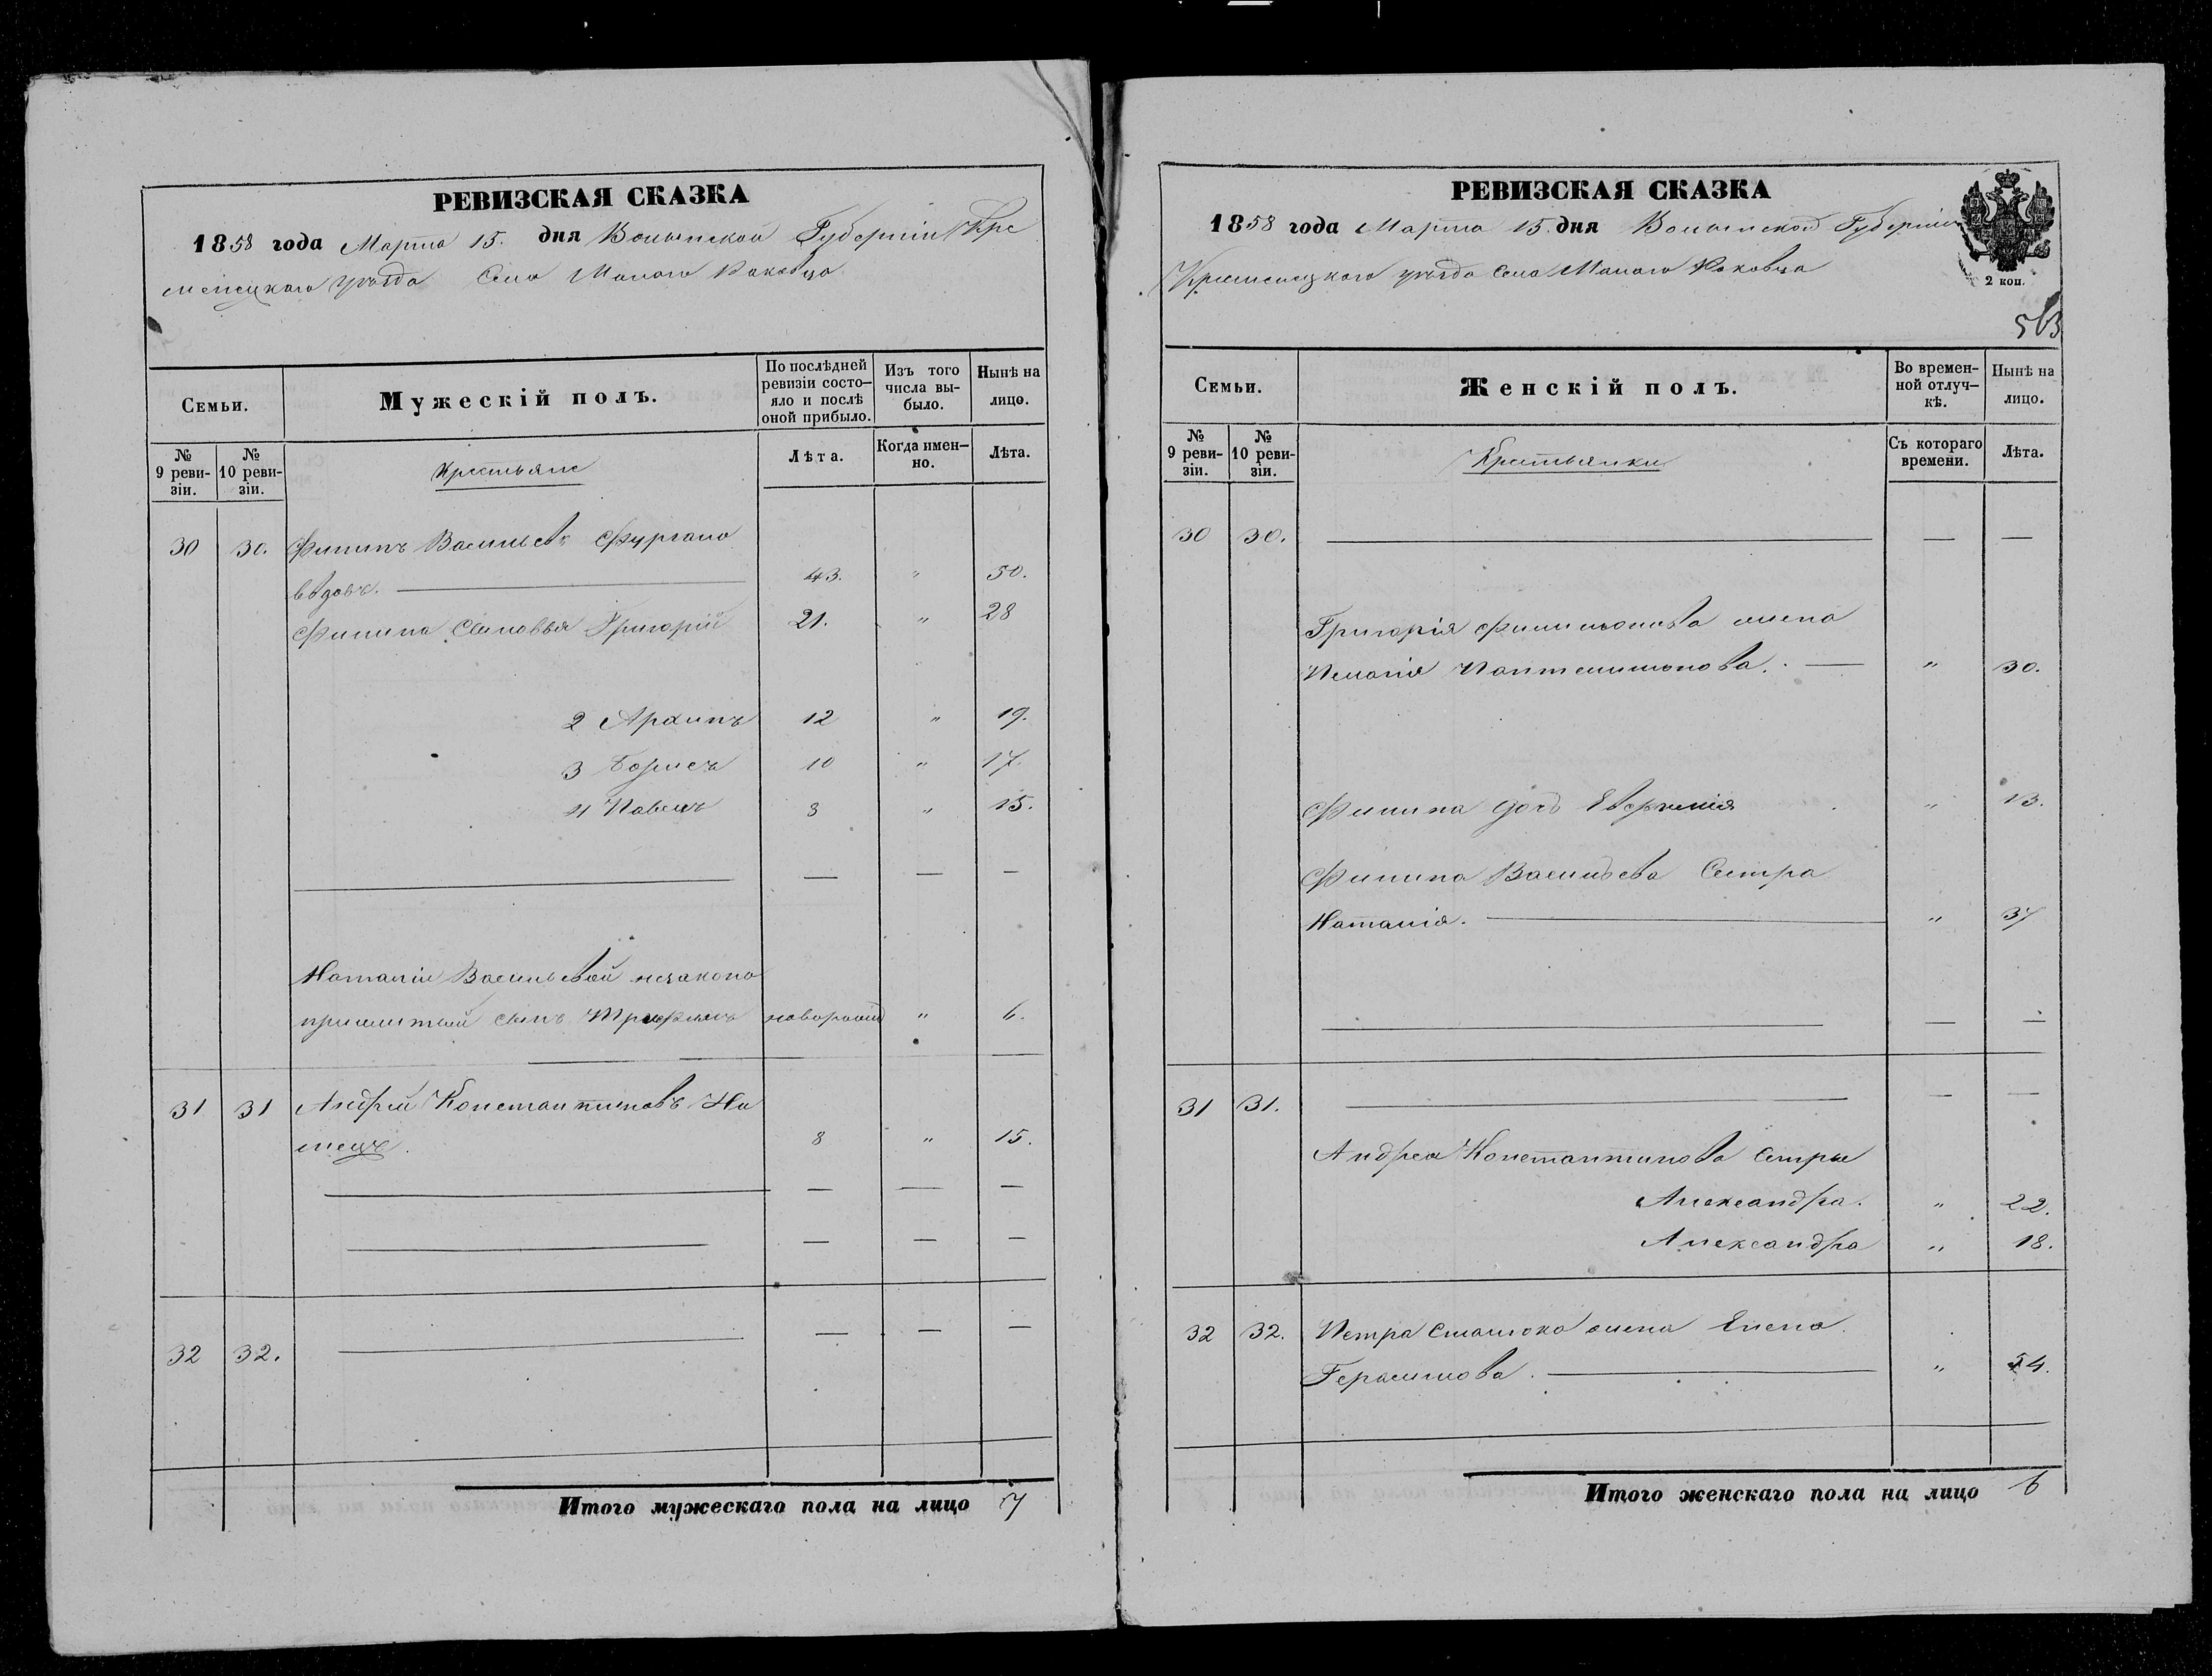 РЕВИЗСКАЯ СКАЗКА
1858 года Марта 15. дня Волынской Губерніи Кре
менецкаго уѣзда Села Малаго Раковца
Семьи.
Мужескій полъ.
По послѣдней ревизіи состо-
яло и послѣ оной прибыло.
Изъ того числа вы-
было.
Нынѣ на лицо.
№ 9 реви-
зіи.
№ 10 реви-
зіи.
Крестьяне
Лѣта.
Когда имен-
но.
Лѣта.
30 30. Филипъ Васильевъ
43. " 50.
Филипа Сыновья Григорій 21. " 28
2 Архипъ 12 " 19.
3 Борисъ 10 " 17.
4 Павелъ 8 " 15.
— — —
Наталіи Васильевой незакона
прижитый сынъ новорожд " 6.
31 31 Андрей Константиновъ Не
мецъ. 8 " 15.
— — —
— — —
32 32. — — —
Итого мужескаго пола на лицо 7
РЕВИЗСКАЯ СКАЗКА
1858 года Марта 15. дня Волынской Губерніи
Кременецкаго уѣзда Села Малаго Раковца
2 коп.
563
Семьи.
Женскій полъ.
Во времен-
ной отлуч-
кѣ.
Нынѣ на лицо.
№ 9 реви-
зіи.
№ 10 реви-
зіи.
Крестьянки
Съ котораго времени.
Лѣта.
30 30. — —
Григорія Филимонова жена
Пелагія Пантелимонова. — " 30.
Филипа дочь " 13.
Филипа Васильева Сестра
Наталія. " 37
— —
31 31. — —
Андрея Константинова Сестры
Александра. " 22.
Александра " 18.
32 32. Петра жена Елена
Герасимова. " 54.
Итого женскаго пола на лицо 6